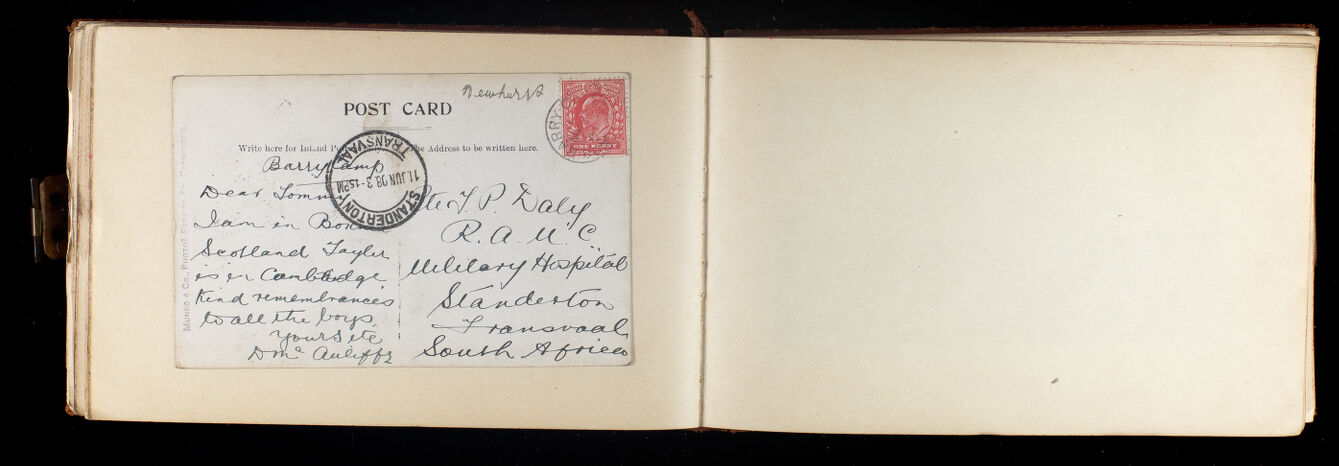 Dewhurst
POST CARD
Write here for Inland the Address to be written here.
Barry Camp
Dear Tommy
I am in Bonnie
Scotland Tayler
is in Cambridge
Kind remembrances
to all the boys
Yours etc
D Mc Auliffe
Pte T. P. Daly
R. A. M. C
Military Hospital
Standerton
Transvaal
South Africa
ONE PENNY
BARRY
STANDERTON
11 JUN 08 3-15PM
TRANSVAAL
MUNRO & Co., PHOTOS